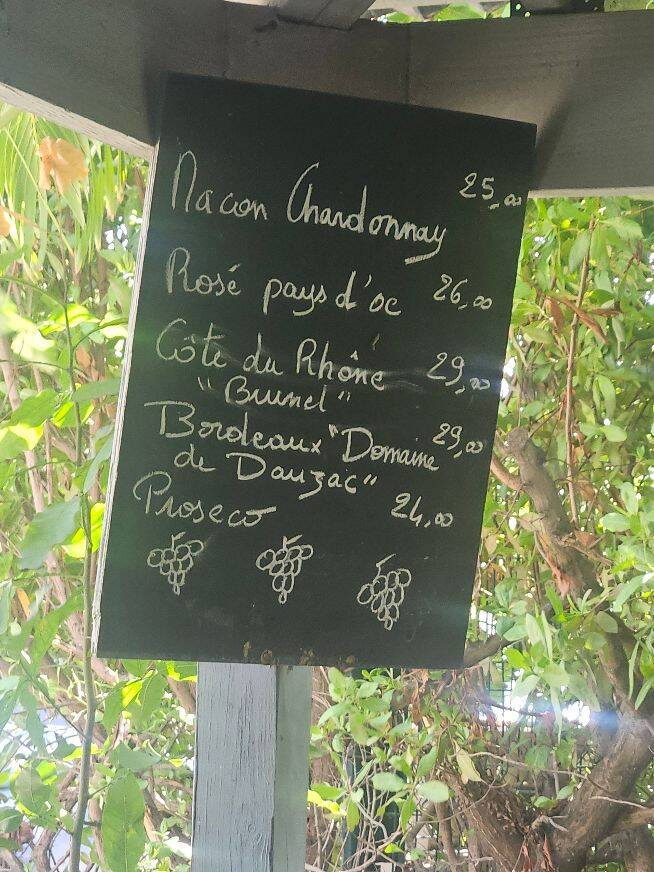 Macon Chardonnay 25,00
Rosé pays d'oc 26,00
Côte du Rhône 29,00
"Brunel"
Bordeaux "Domaine 29,00
de Dauzac"
Proseco 24,00